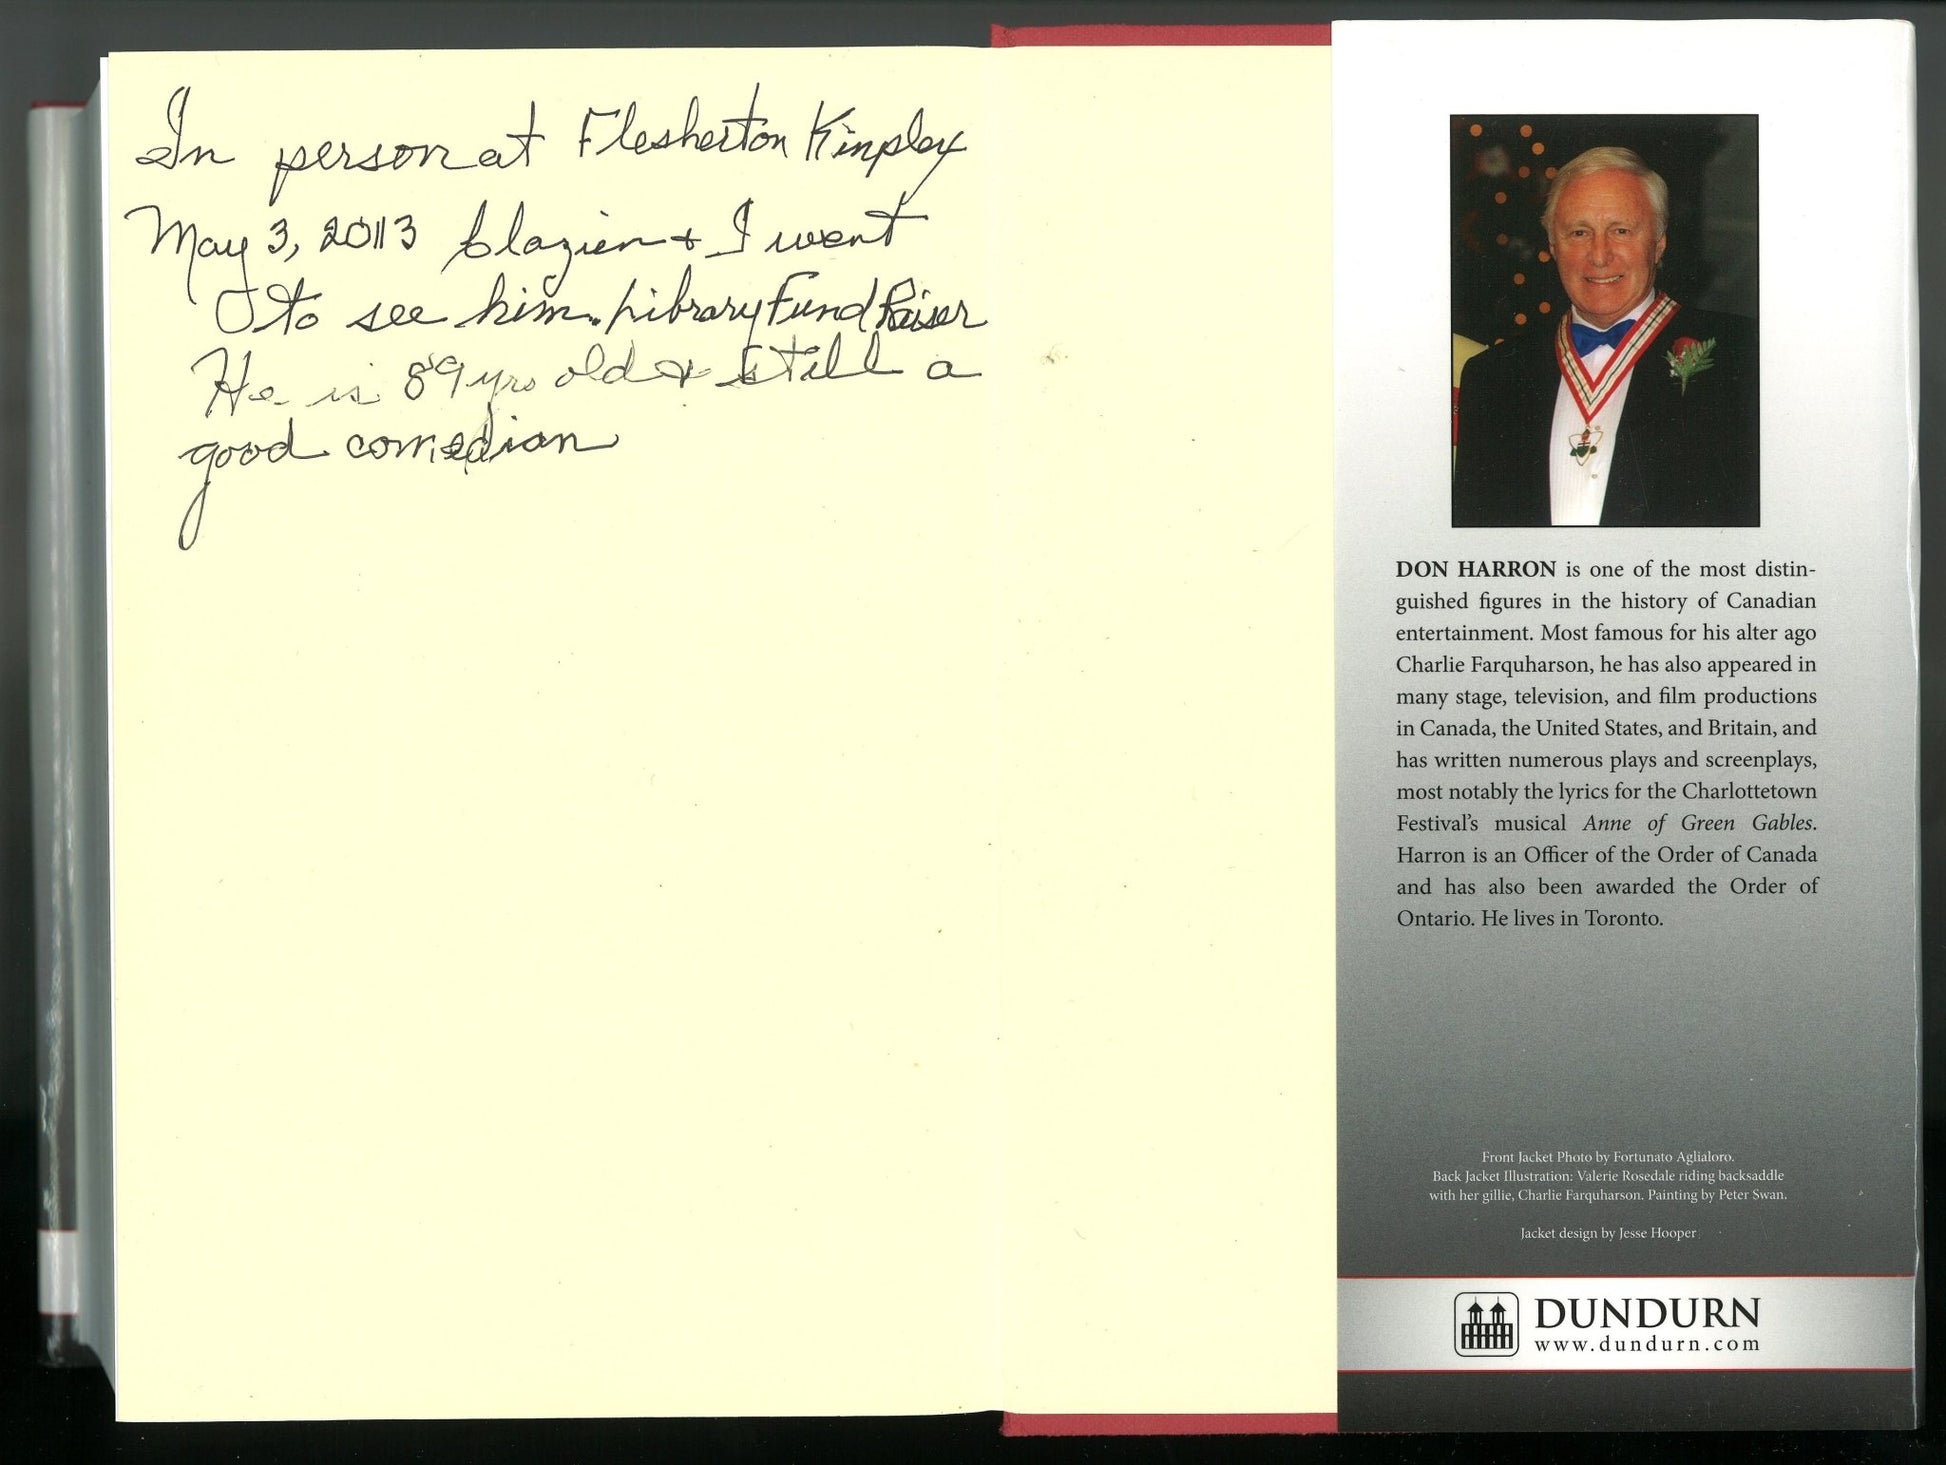 In person at Flesherton Kinplex
May 3, 2013 & I went
to see him. Library Fund Raiser
He is 89 yrs old & still a
good comedian
DON HARRON is one of the most distin-
guished figures in the history of Canadian
entertainment. Most famous for his alter ago
Charlie Farquharson, he has also appeared in
many stage, television, and film productions
in Canada, the United States, and Britain, and
has written numerous plays and screenplays,
most notably the lyrics for the Charlottetown
Festival's musical Anne of Green Gables.
Harron is an Officer of the Order of Canada
and has also been awarded the Order of
Ontario. He lives in Toronto.
Front Jacket Photo by Fortunato Aglialoro.
Back Jacket Illustration: Valerie Rosedale riding backsaddle
with her gillie, Charlie Farquharson. Painting by Peter Swan.
Jacket design by Jesse Hooper
DUNDURN
www.dundurn.com